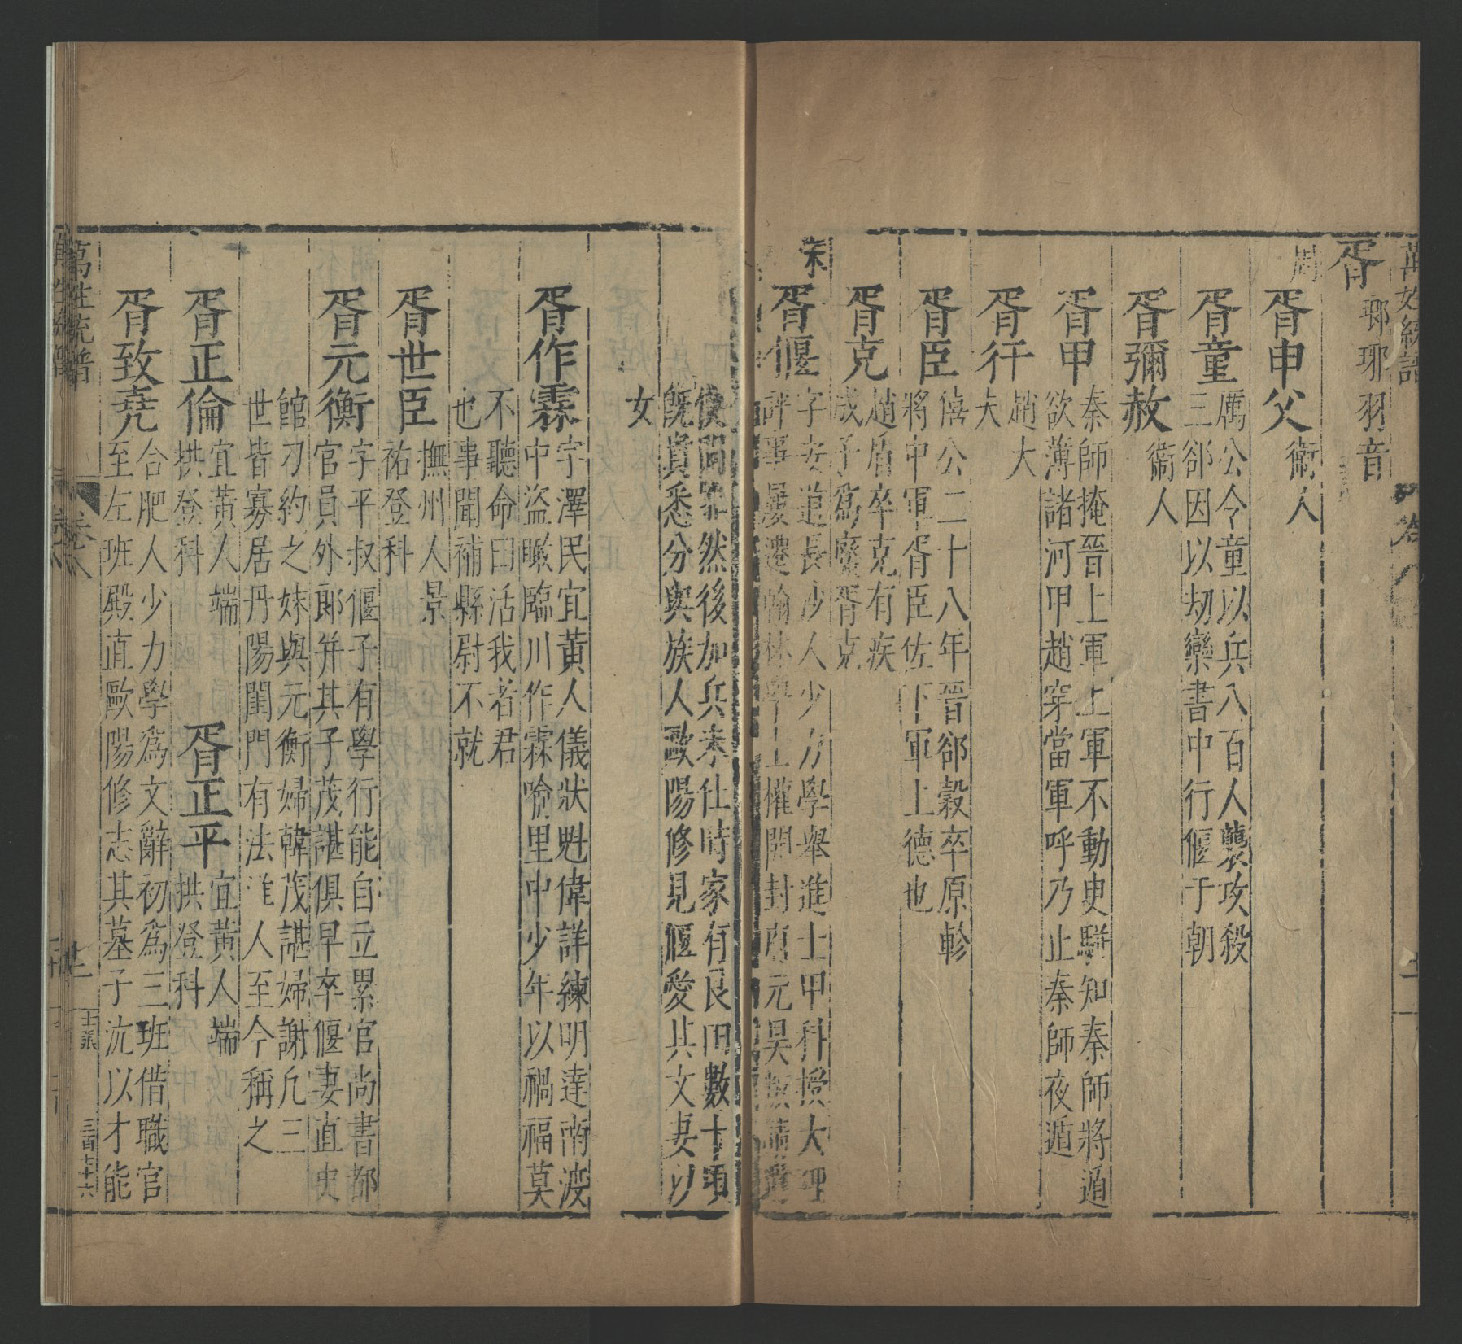 萬姓統譜
胥
瑯琊羽音
周
胥申父
衞人
胥童
厲公令童以兵八百人襲攻殺
三郤因以刧欒書中行偃于朝
胥彌赦
衞人
胥甲
秦師掩晉上軍上軍不動史駢知秦師將遁
欲薄諸河甲趙穿當軍呼乃止秦師夜遁
胥行
趙大
夫
胥臣
僖公二十八年晉郤縠卒原軫
將中軍胥臣佐下軍上德也
胥克
趙盾卒克有疾
成子爲廢胥克
宋
胥偃
字安道長沙人少力學舉進士甲科授大理
評事屢遷翰林學士權開封府元昊
問罪然後加兵未仕時家有良田數十頃
旣貴悉分與族人歐陽修見偃愛其文妻以
女
胥作霖
字澤民宜黃人儀狀魁偉詳練明達南渡
中盜瞰臨川作霖喻里中少年以禍福莫
不聽命曰活我若君
也事聞補縣尉不就
胥世臣
撫州人景
祐登科
胥元衡
字平叔偃子有學行能自立累官尚書都
官員外郎幷其子茂諶俱早卒偃妻直史
館刁約之妹與元衡婦韓茂諶婦謝凢三
世皆寡居丹陽閨門有法江人至今稱之
胥正倫
宜黃人端
拱登科
胥正平
宜黃人端
拱登科
胥致堯
合肥人少力學爲文辭初爲三班借職官
至左班殿直歐陽修志其墓子沆以才能
萬姓統譜
卷八